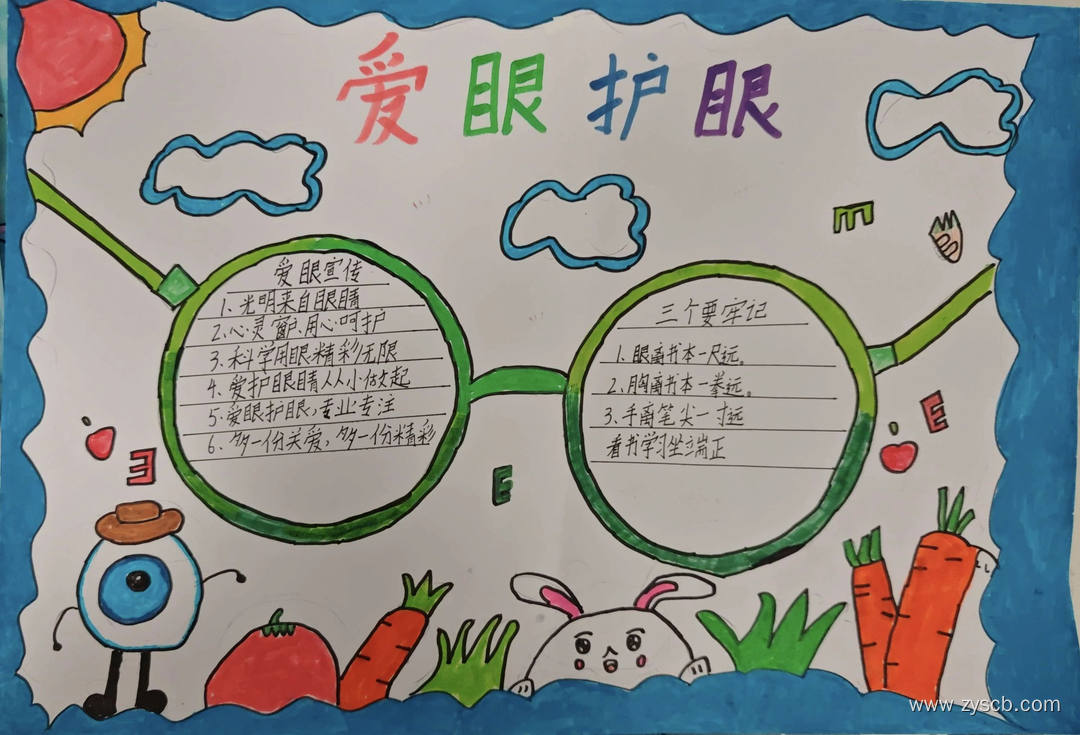 爱眼护眼
爱眼宣传
1、光明来自眼睛
2、心灵窗户、用心呵护
3、科学用眼精彩无限
4、爱护眼睛从小做起
5、爱眼护眼，专业专注
6、多一份关爱，多一份精彩
三个要牢记
1、眼离书本一尺远。
2、胸离书本一拳远。
3、手离笔尖一寸远
看书学习坐端正
E
E
E
E
www.zyscb.com